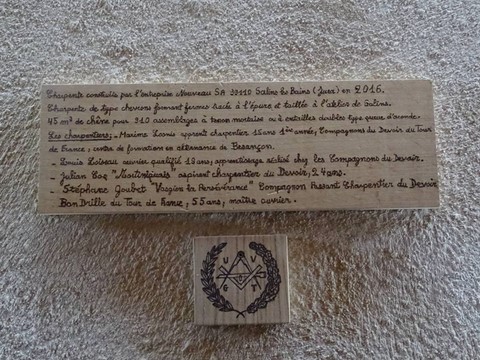 Charpente construite par l'entreprise Nouveau SA 39110 Salins les Bains (Jura) en 2016.
Charpente de type chevrons formant fermes tracée à l'épure et taillée à l'atelier de Salins.
45 m³ de chêne pour 310 assemblages à tenon mortaise ou à entailles doubles type queue d'aronde.
Les charpentiers: - Marino Lonis apprenti charpentier 15 ans 1ère année, Compagnons du Devoir du Tour
de France, centre de formation en alternance de Besançon.
- Louis Loiseau ouvrier qualifié 19 ans, apprentissage réalisé chez les Compagnons du Devoir.
- Julian Coq "Martiniquais" aspirant charpentier du Devoir, 24 ans.
- Stéphane Goubet "Vosgien la Persévérance" Compagnon Passant Charpentier du Devoir
Bon Drille du Tour de France, 55 ans, maître ouvrier.
U V
G T